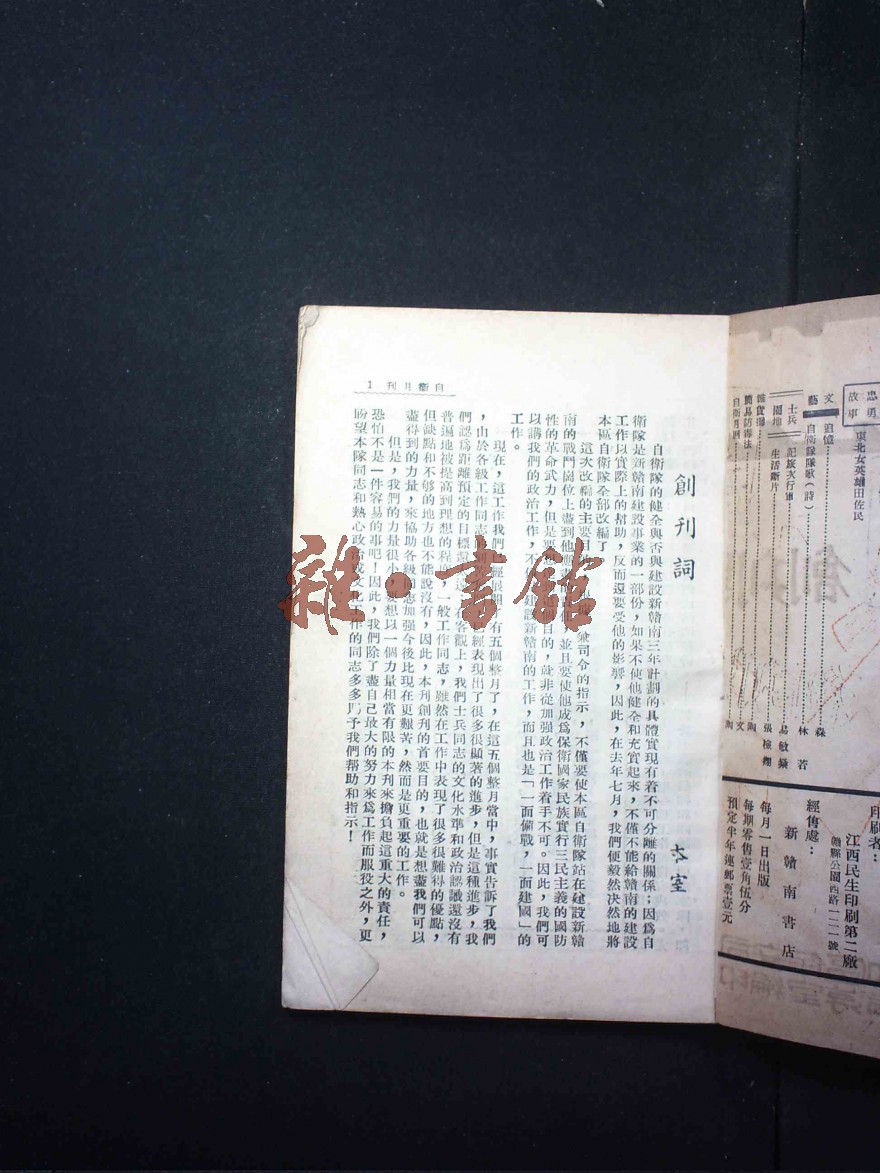 忠勇
故事
東北女英雄田佐民
文
藝
追憶
森
自衛隊隊歌(詩)
林若
士兵
園地
記族次行軍
易敏燊
生活斷片
張
雜貨攤
陶
簡易防毒法
文
自衛月刊
陶
印刷者:
江西民生印刷第二廠
贛縣公園西路一二一號
經售處:
新贛南書店
每月一日出版
每期零售壹角伍分
預定半年連郵票壹元
創刊詞
本室
自衛隊的健全與否與建設新贛南三年計劃的具體實現有着不可分離的關係;因爲自
衛隊是新贛南建設事業的一部份,如果不使他健全和充實起來,不僅不能給贛南的建設
工作以實際上的幇助,反而還要受他的影響,因此,在去年七月,我們便毅然決然地將
本區自衛隊全部改編了
這次改編的主要目 兼司令的指示,不僅要使本區自衛隊站在建設新贛
南的戰鬥崗位上盡到他 並且要使他成爲保衛國家民族實行三民主義的國防
性的革命武力,但是要 目的,就非從加强政治工作着手不可。因此,我們可
以講我們的政治工作,不 建設新贛南的工作,而且也是「一面備戰,一面建國」的
工作。
現在,這工作我們已經展開 有五個整月了,在這五個整月當中,事實告訴了我們
,由於各級工作同志 已經表現出了很多很顯著的進步,但是這種進步,我
們認爲距離預定的目標還 在客觀上,我們士兵同志的文化水準和政治認識還沒有
普遍地被提高到理想的程度,一般工作同志,雖然在工作中表現了很多很難得的優點,
但缺點和不够的地方也不能說沒有,因此,本刊創刊的首要目的,也就是想盡我們可以
盡得到的力量,來協助各級同志加强今後比現在更艱苦,然而是更重要的工作。
但是,我們的力量很小,要想以一個力量相當有限的本刊來擔負起這重大的責任,
恐怕不是一件容易的事吧!因此,我們除了盡自己最大的努力來爲工作而服役之外,更
盼望本隊同志和熱心政治或文化工作的同志多多賜予我們帮助和指示!
自衛月刊 1
雜·書館
創刊